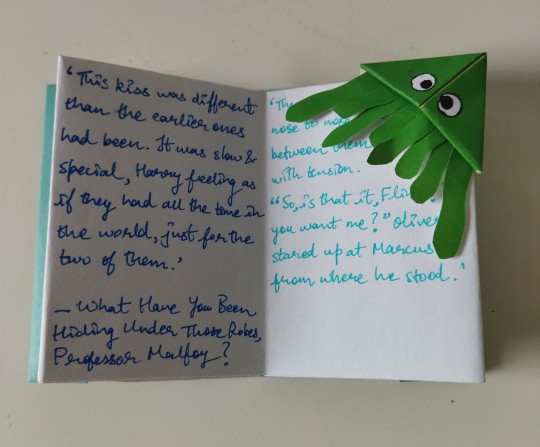 'This kiss was different
than the earlier ones
had been. It was slow &
special, Harry feeling as
if they had all the time in
the world, just for the
two of them.'
— What Have You Been
Hiding Under Those Robes,
Professor Malfoy?
nose to
between them
with tension.
"So, is that it,
you want me?" Oliver
stared up at Marcus
from where he stood.'